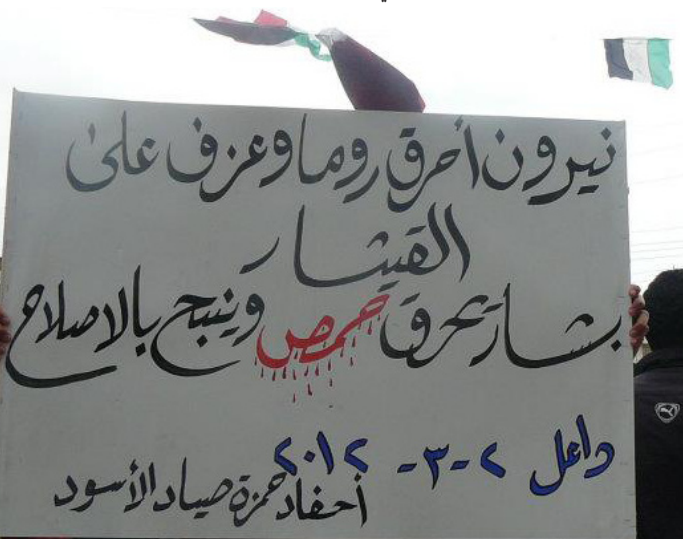 نيرون أحرق روما وعزف على
القيثار
بشار يحرق حمص وينبح بالاصلاح
داعل ٢-٣-٢٠١٢
أحفاد حمزة صياد الأسود